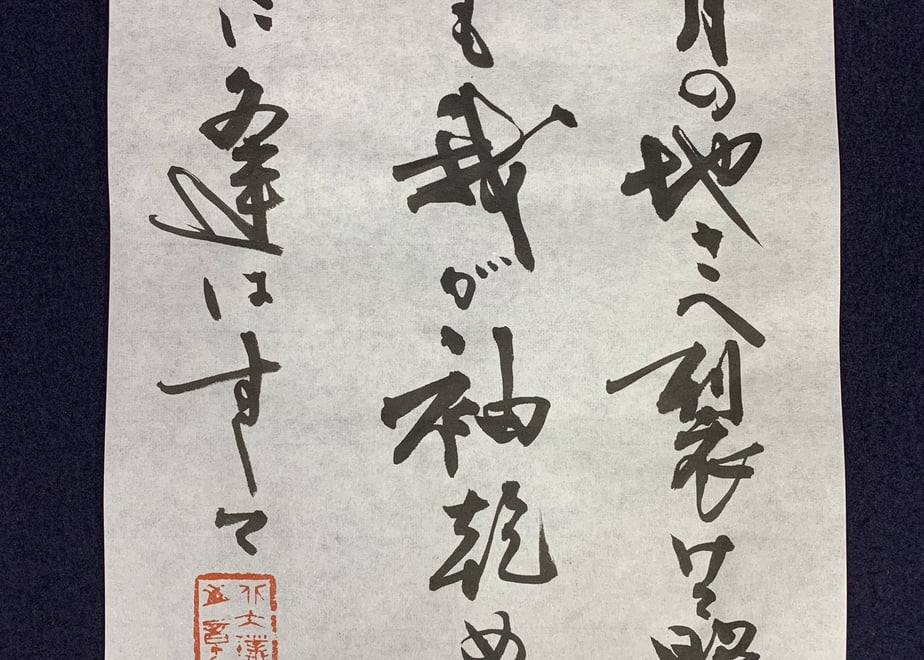 月の地さへ裂けて照
も我が袖乾め
に逢はすして